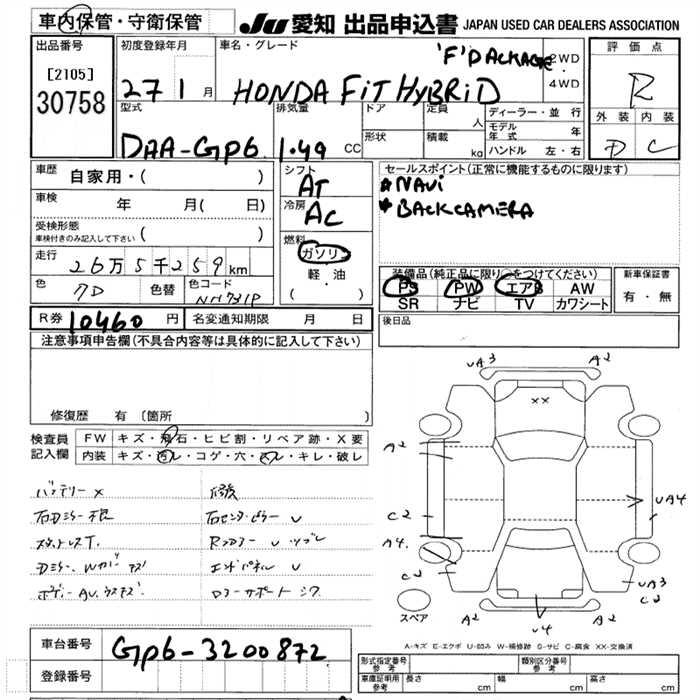 車内保管・守衛保管
JU 愛知 出品申込書 JAPAN USED CAR DEALERS ASSOCIATION
出品番号
[2105]
30758
初度登録年月
27 1 月
車名・グレード
'F' PACKAGE
HONDA FiT HYBRiD
2WD
・
4WD
評価点
R
外装 内装
D C
型式
DAA-GP6
排気量
1.49 CC
ドア
定員
人
形状
積載
kg
ディーラー・並行
モデル年式 年
ハンドル 左・右
車歴
自家用・( )
車検
年 月( 日)
受検形態
車検付きのみ記入して下さい ( )
走行
26万5千259km
色
色替
色コード
NH731P
シフト
AT
冷房
AC
燃料
ガソリン
軽・油
( ・ )
セールスポイント(正常に機能するものに限ります)
★NAVi
★BACKCAMERA
装備品(純正品に限り○をつけてください)
PS PW エアB AW
SR ナビ TV カワシート
新車保証書
有・無
R券 10460 円 名変通知期限 月 日
後日品
注意事項申告欄(不具合内容等は具体的に記入して下さい)
修復歴 有〔箇所 〕
検査員記入欄
FW キズ・飛石・ヒビ割・リペア跡・X要
内装 キズ・汚レ・コゲ・穴・スレ・キレ・破レ
バッテリーX
右センターピラー U
スタットレスT.
エンドパネル U
UA3 A2
XX
A2
C2
A4
C2
UA4
UA3
C2
A2 U4 A2
スペア
A-キズ E-エクボ U-凹み W-補修跡 S-サビ C-腐食 XX-交換済
車台番号
GP6-3200872
登録番号
形式指定番号 参考
類別区分番号 参考
車庫証明用 参考 長さ cm 幅 cm 高さ cm